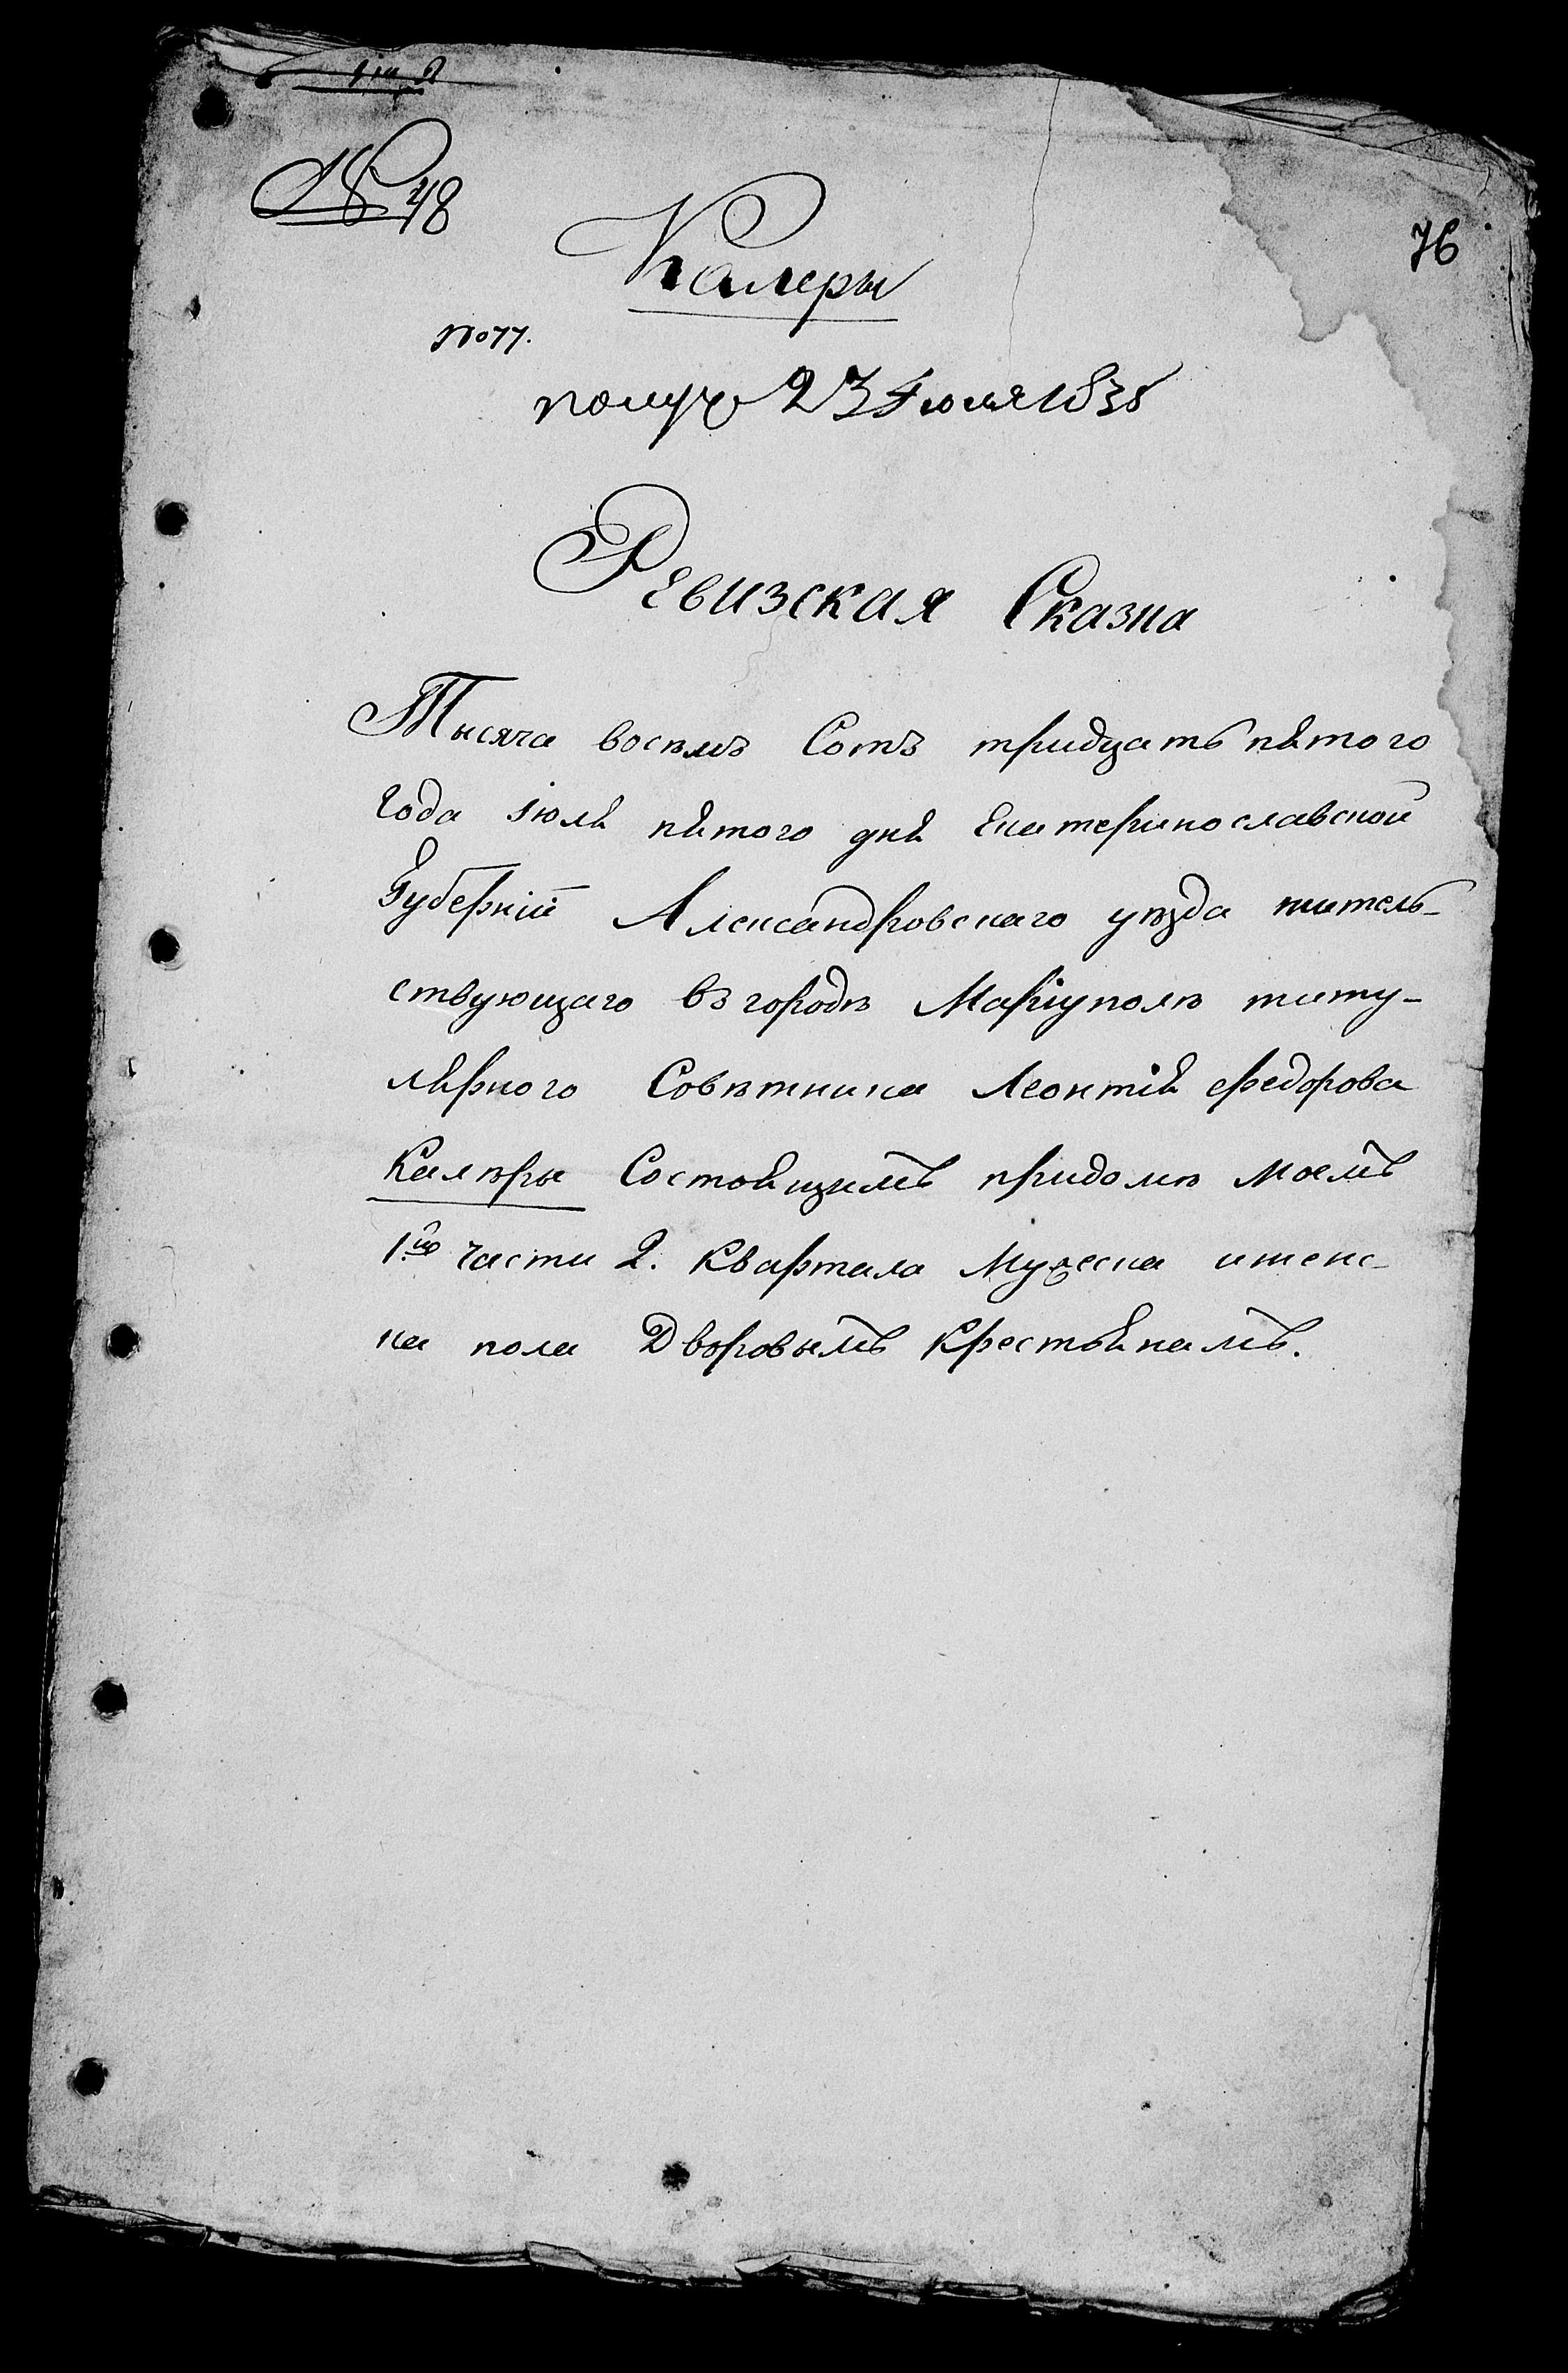 № 48
76
Калеры
№ 77.
получ 23 Июля 1835
Ревизская Сказка
Тысяча восемъ Сотъ тридцать пятого
года Іюля пятого дня Екатеринославской
Губерніи Александровскаго уѣзда житель-
ствующаго въ городѣ Маріуполѣ титу-
лярного Совѣтника Леонтія Федорова
Калѣры Состоящимъ придомѣ моемъ
1й части 2. квартала Мужеска иженс-
ка пола Дворовымъ крестьянамъ.